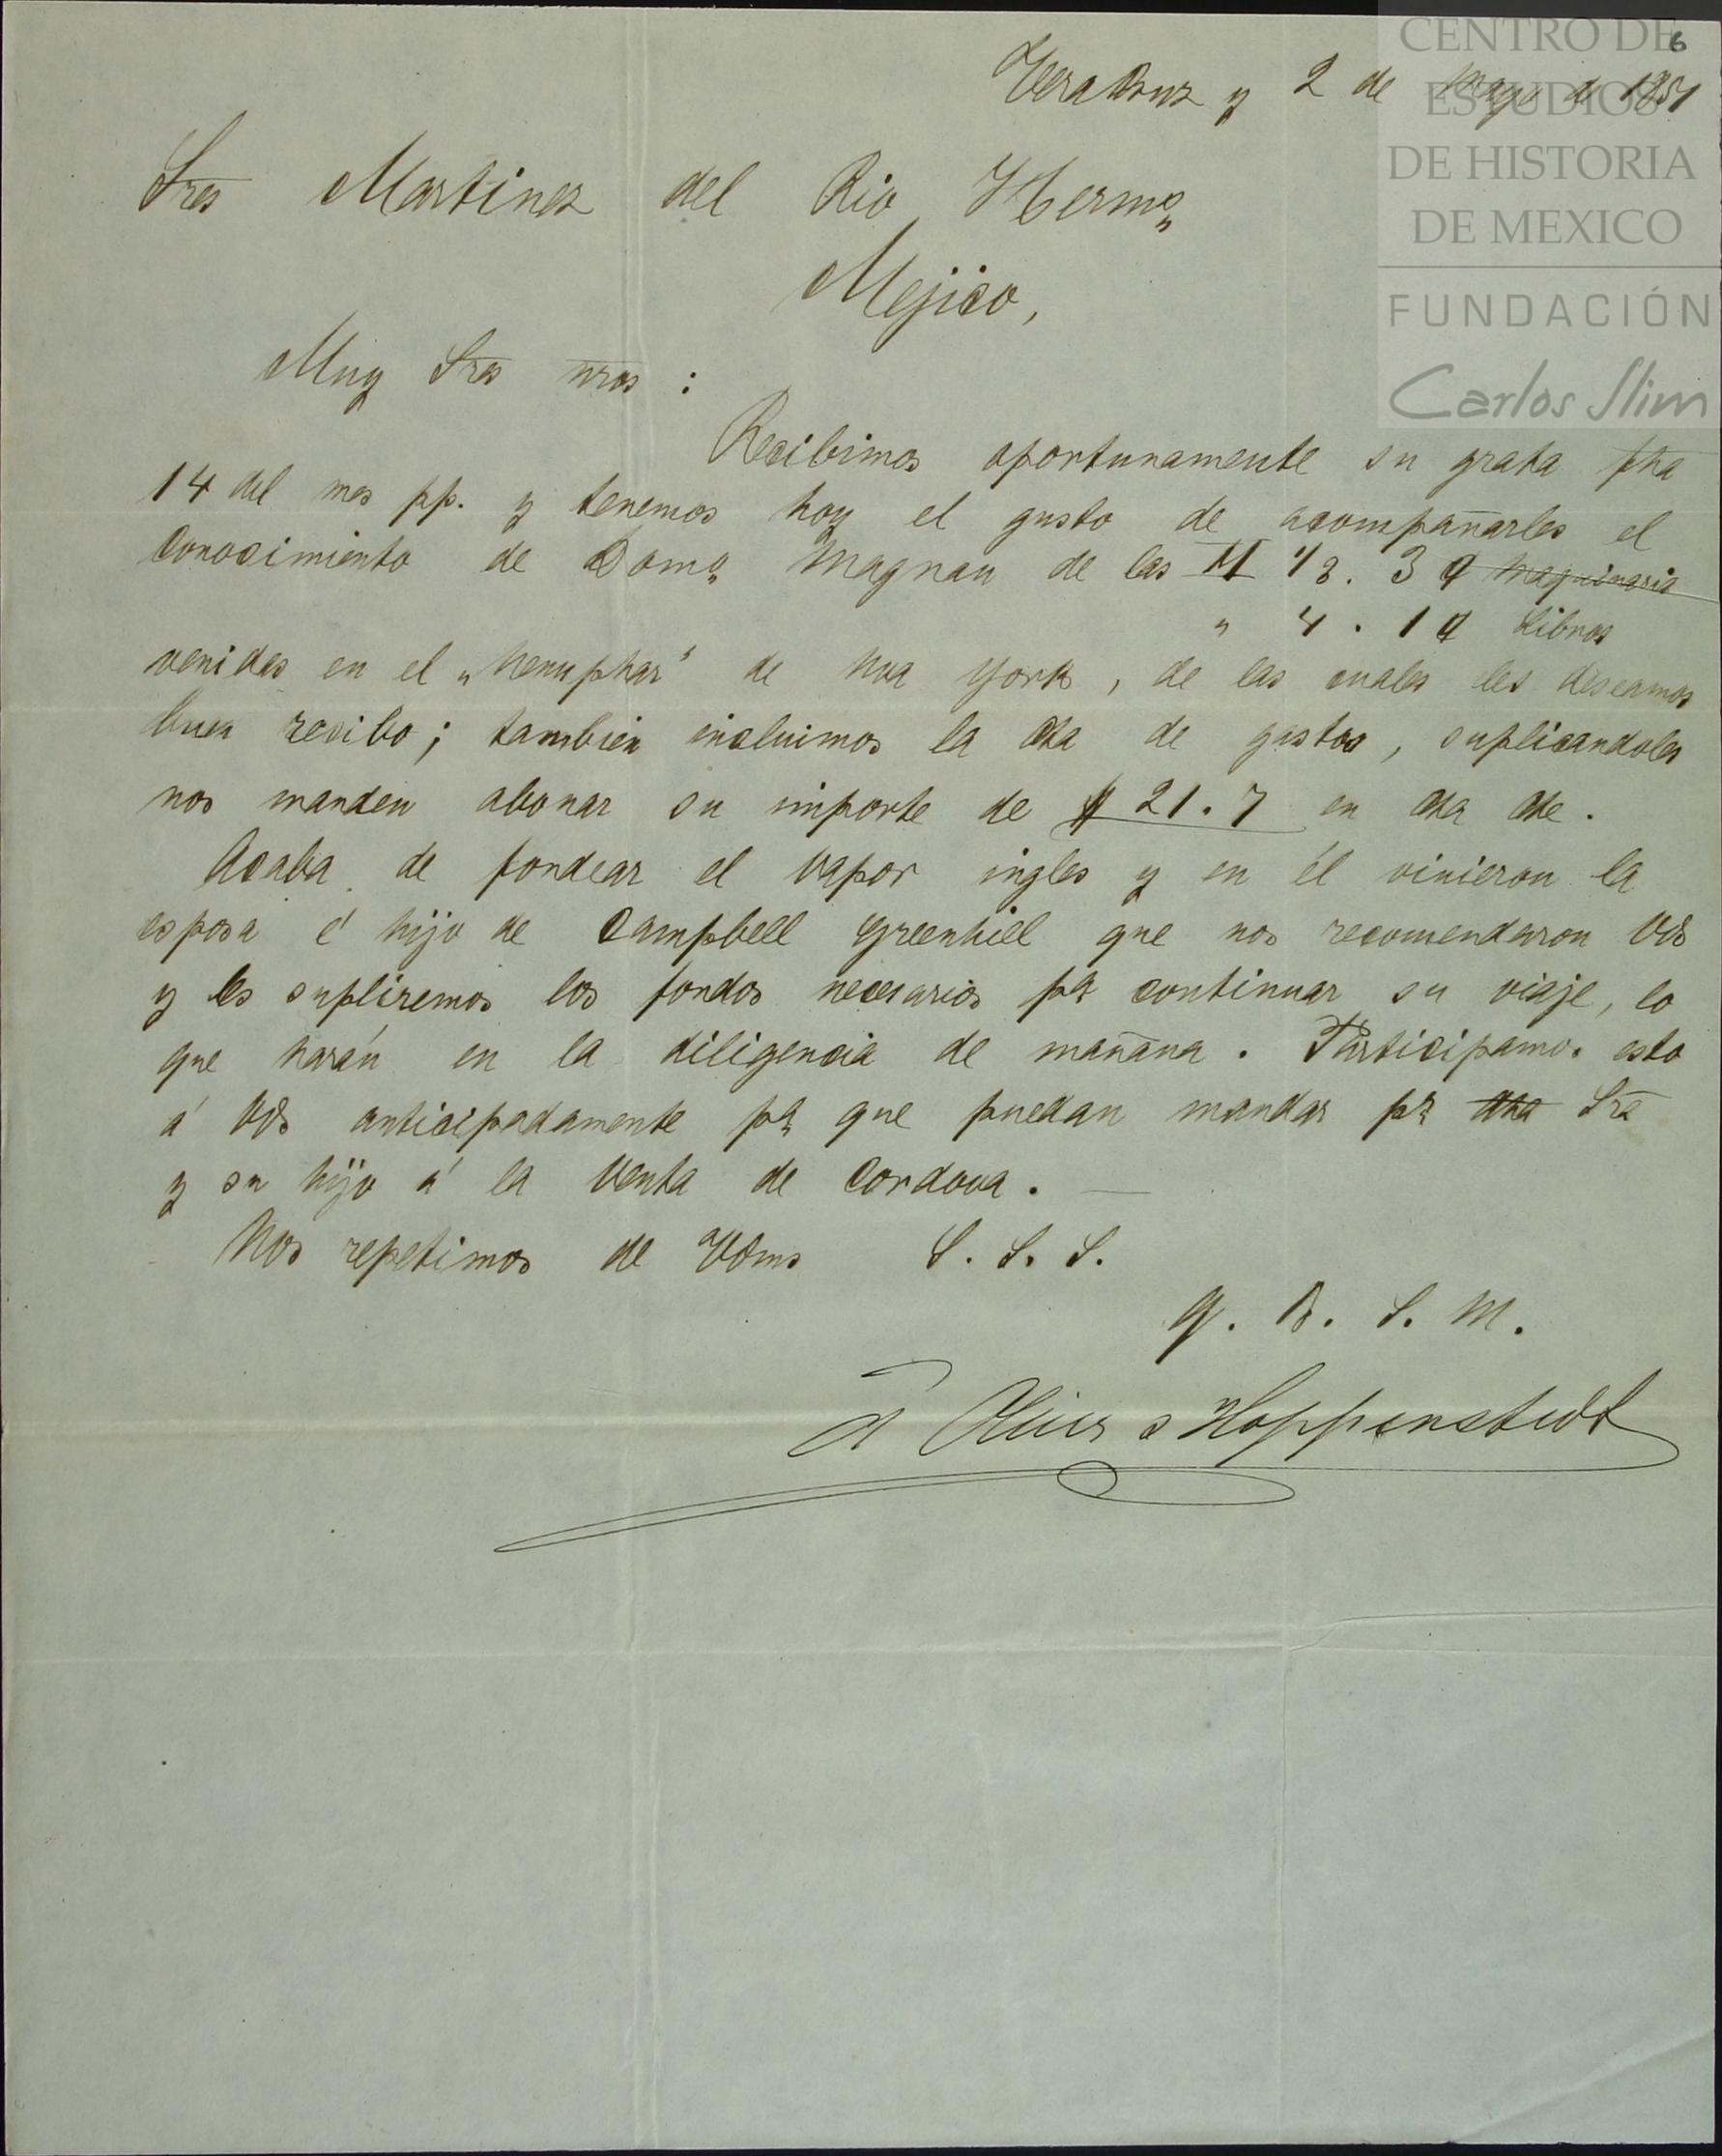 CENTRO DE
ESTUDIOS
DE HISTORIA
DE MEXICO
FUNDACIÓN
Carlos Slim
6
Vera Cruz y 2 de Mayo de 1851
Sres Martinez del Rio Hermos
Mejico,
Muy Sres nros :
Recibimos oportunamente su grata fha
14 del mes pp. y tenemos hoy el gusto de acompañarles el
Conocimiento de Domo Magnan de las M 1/3. 3 maquinaria
" 4 . 1 Libros
venidas en el „Nenuphar" de Nva York, de las cuales les deseamos
buen recibo; tambien incluimos la Cta de gastos, suplicandoles
nos manden abonar su importe de $ 21.7 en Cta Cte.
Acaba de fondear el vapor ingles y en él vinieron la
esposa é hijo de Campbell Greenhill que nos recomendaron Vds
y les supliremos los fondos necesarios pa continuar su viaje, lo
que harán en la diligencia de mañana. Participamos esto
á Vds anticipadamente pa que puedan mandar pr dha Sra
y su hijo á la Venta de Cordova. —
Nos repetimos de Vdms S. S. S.
q. B. S. M.
Hoppenstedt